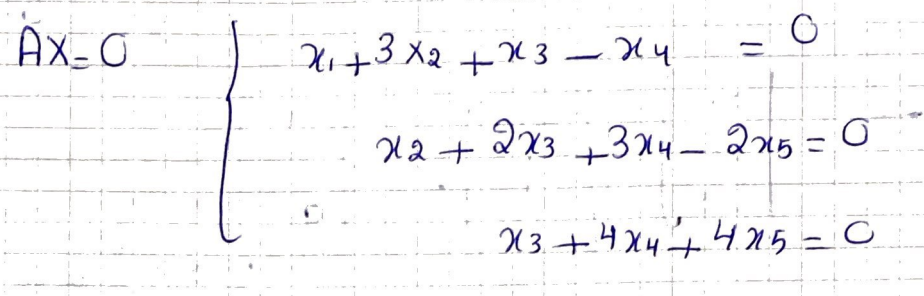 AX=0 { x1+3x2+x3-x4 = 0
x2+2x3+3x4-2x5=0
x3+4x4+4x5=0